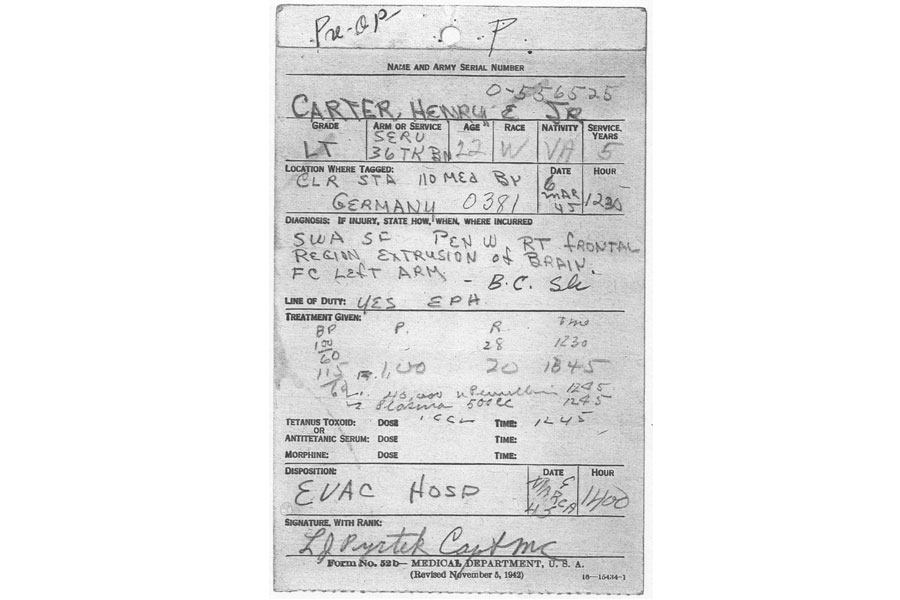 Pre-OP P.
NAME AND ARMY SERIAL NUMBER
0-556525
CARTER, HENRY E JR
GRADE ARM OR SERVICE AGE RACE NATIVITY SERVICE, YEARS
LT SERV 36 TK BN 22 W VA 5
LOCATION WHERE TAGGED: DATE HOUR
CLR STA 110 MED BN 6 MAR 45 1230
GERMANY 0381
DIAGNOSIS: IF INJURY, STATE HOW, WHEN, WHERE INCURRED
SWA SF PEN W, RT frontal
REGION, EXTRUSION of BRAIN.
FC Left ARM - B.C.
LINE OF DUTY: YES EPH
TREATMENT GIVEN:
BP P. R. time
100/60 28 1230
115 100 20 1345
1. 40,000 u Penicillin 1245
2 Plasma 500cc 1245
TETANUS TOXOID: DOSE 1cc TIME: 1245
OR
ANTITETANIC SERUM: DOSE TIME:
MORPHINE: DOSE TIME:
DISPOSITION: DATE HOUR
EVAC HOSP MAR 45 1400
SIGNATURE, WITH RANK:
L J Pyrtek Capt MC
FORM NO. 52b— MEDICAL DEPARTMENT, U. S. A.
(Revised November 5, 1942) 16—15434-1